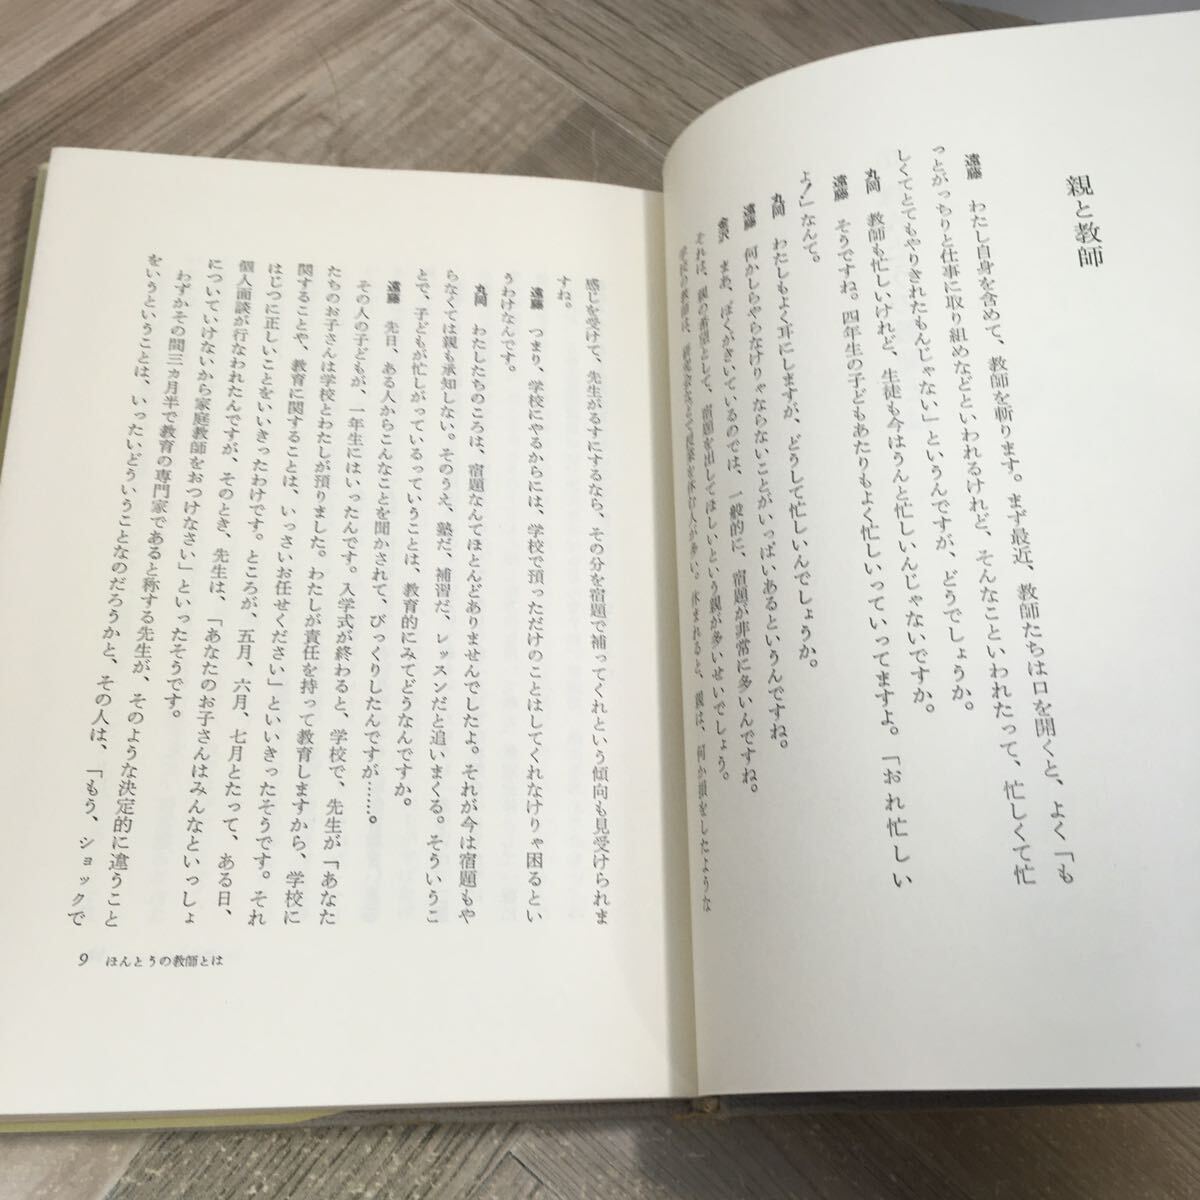 親と教師
遠藤　わたし自身を含めて、教師を斬ります。まず最近、教師たちは口を開くと、よく「も
っとがっちりと仕事に取り組めなどといわれるけれど、そんなこといわれたって、忙しくて忙
しくてとてもやりきれたもんじゃない」というんですが、どうでしょうか。
丸岡　教師も忙しいけれど、生徒も今はうんと忙しいんじゃないですか。
遠藤　そうですね。四年生の子どもあたりもよく忙しいっていってますよ。「おれ忙しい
よ！」なんて。
丸岡　わたしもよく耳にしますが、どうして忙しいんでしょうか。
遠藤　何かしらやらなけりゃならないことがいっぱいあるというんですね。
金沢　まあ、ぼくがきいているのでは、一般的に、宿題が非常に多いんですね。
それは、親の希望として、宿題を出してほしいという親が多いせいでしょう。
学校の教師は、研究会などで授業を休む人が多い。休まれると、親は、何か損をしたような
感じを受けて、先生がるすにするなら、その分を宿題で補ってくれという傾向も見受けられま
すね。
遠藤　つまり、学校にやるからには、学校で預っただけのことはしてくれなけりゃ困るとい
うわけなんです。
丸岡　わたしたちのころは、宿題なんてほとんどありませんでしたよ。それが今は宿題もや
らなくては親も承知しない。そのうえ、塾だ、補習だ、レッスンだと追いまくる。そういうこ
とで、子どもが忙しがっているっていうことは、教育的にみてどうなんですか。
遠藤　先日、ある人からこんなことを聞かされて、びっくりしたんですが……。
その人の子どもが、一年生にはいったんです。入学式が終わると、学校で、先生が「あなた
たちのお子さんは学校とわたしが預りました。わたしが責任を持って教育しますから、学校に
関することや、教育に関することは、いっさいお任せください」といいきったそうです。それ
はじつに正しいことをいいきったわけです。ところが、五月、六月、七月とたって、ある日、
個人面談が行なわれたんですが、そのとき、先生は、「あなたのお子さんはみんなといっしょ
についていけないから家庭教師をおつけなさい」といったそうです。
わずかその間三ヵ月半で教育の専門家であると称する先生が、そのような決定的に違うこと
をいうということは、いったいどういうことなのだろうかと、その人は、「もう、ショックで
9　ほんとうの教師とは